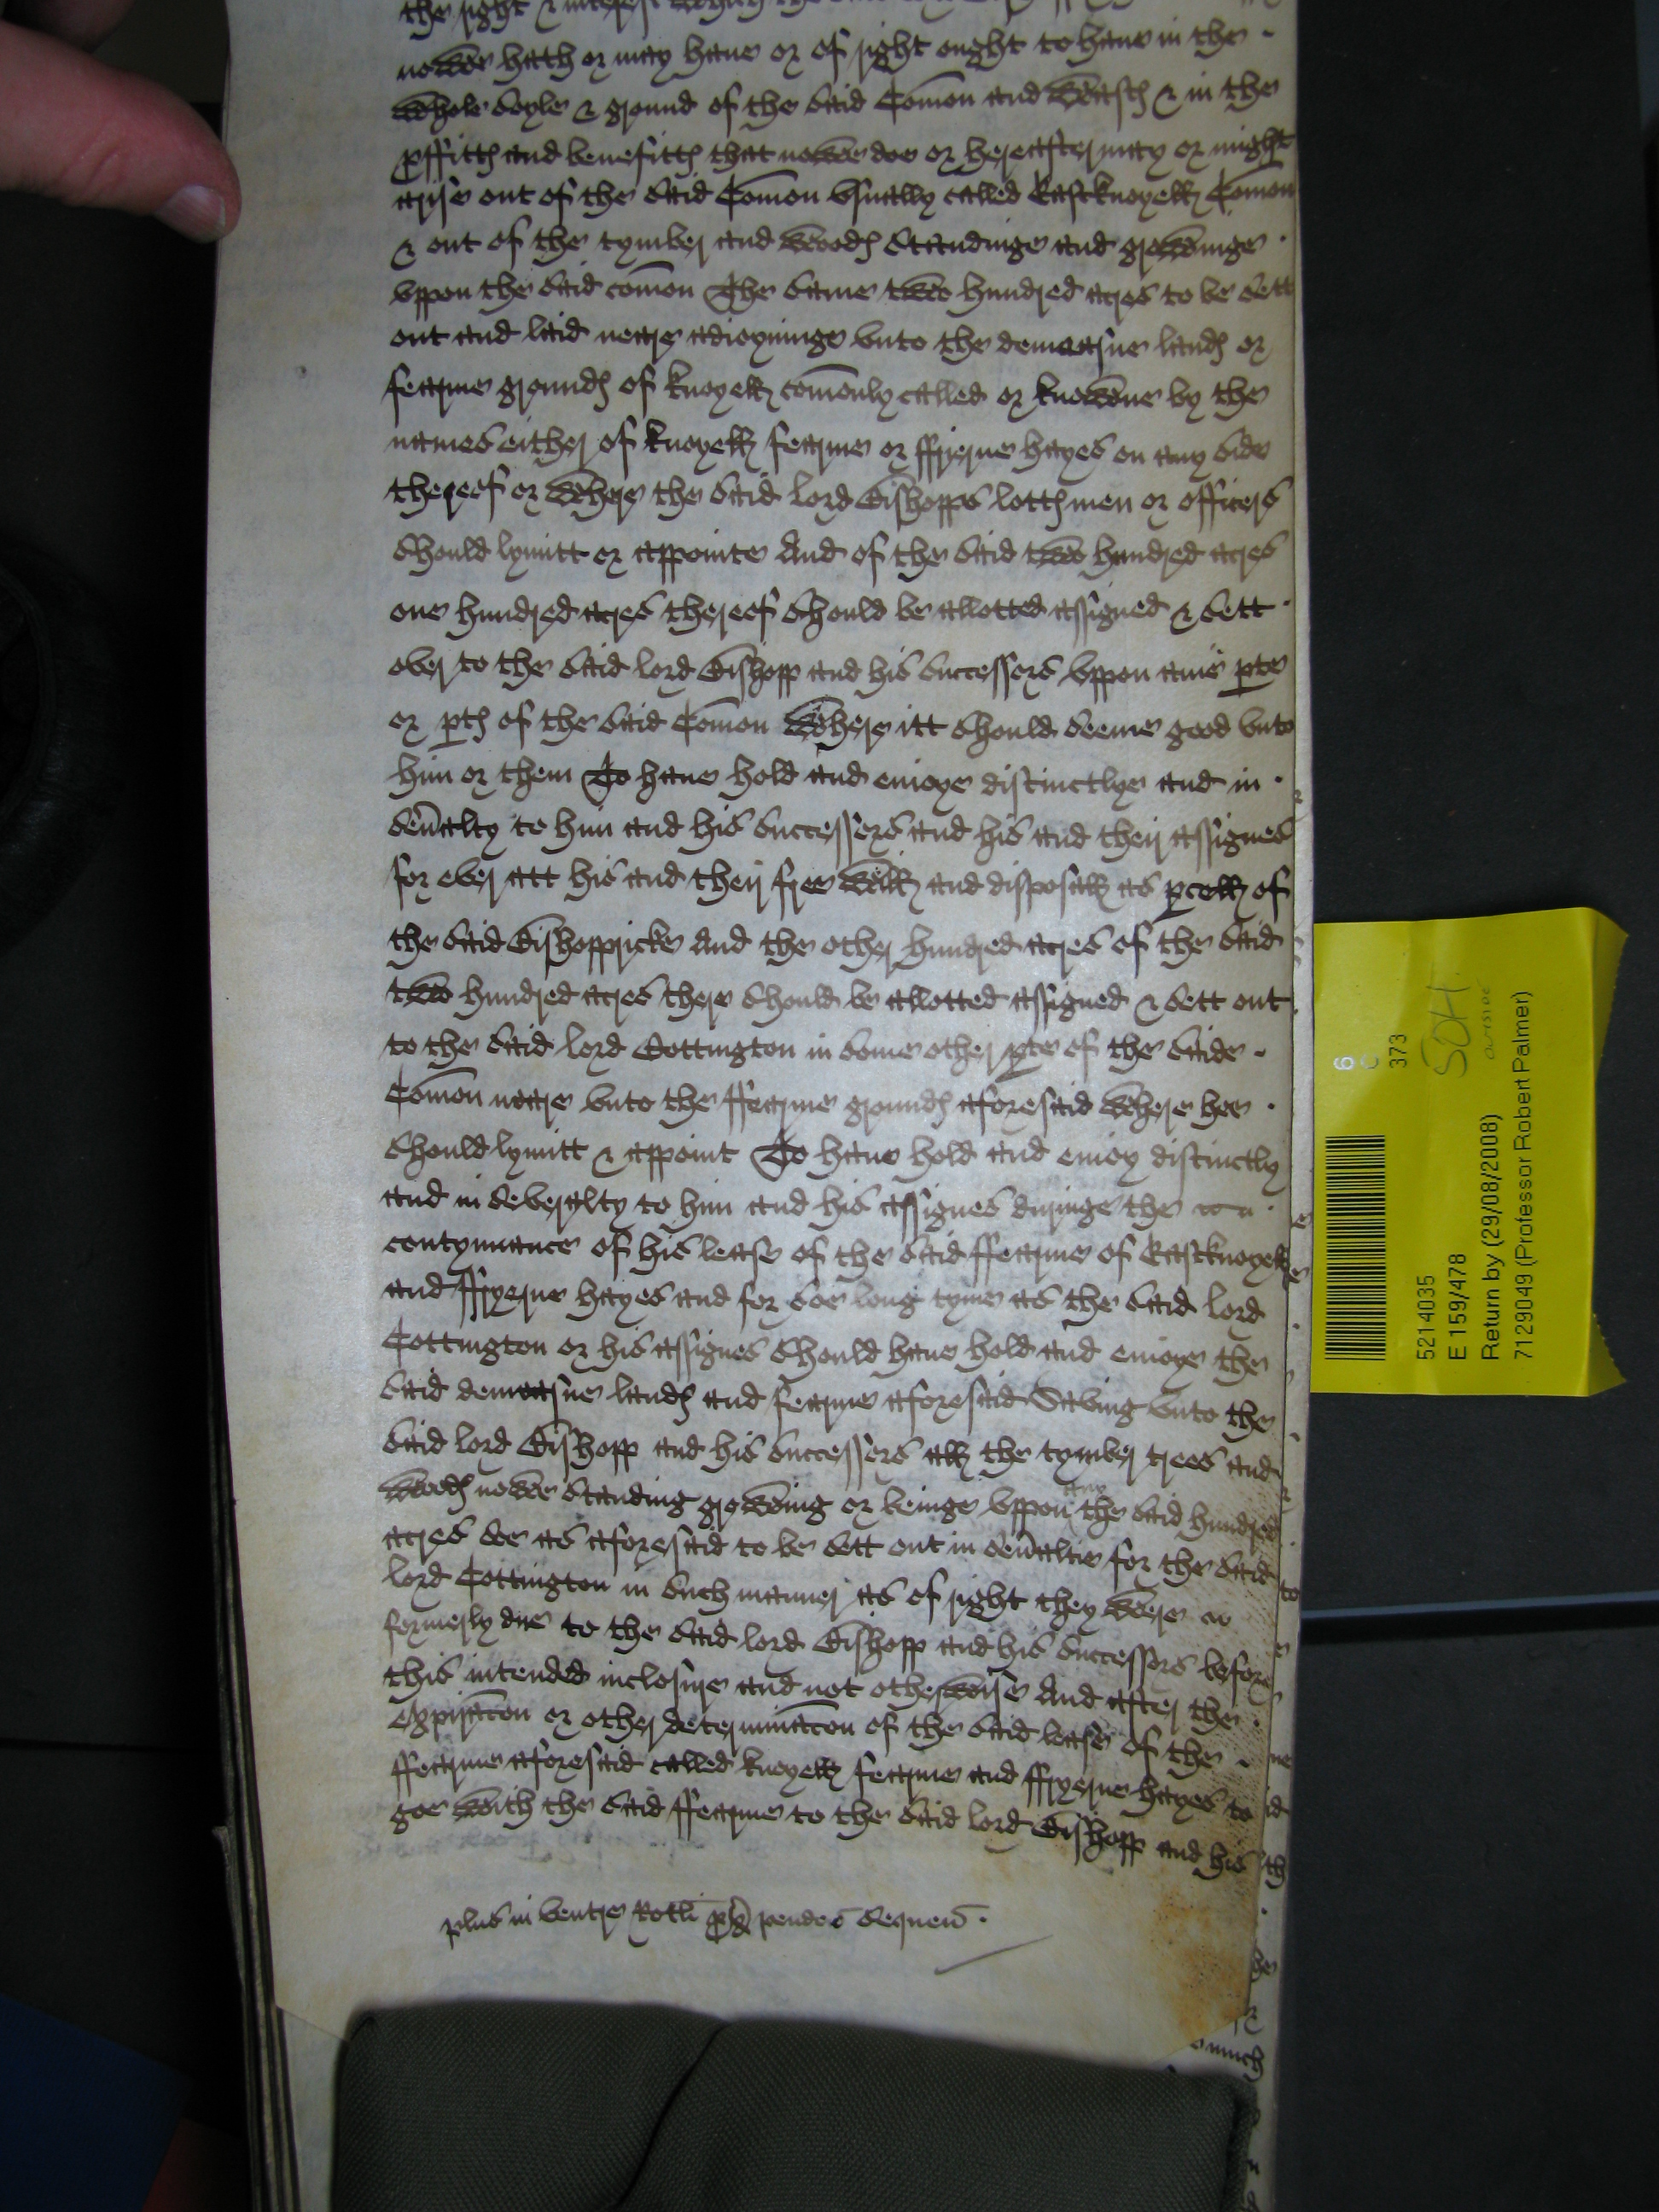 the right & interest which the
nowe hath or may haue or of right ought to haue in the
whole soyle & ground of the said Com̄on and Wast & in the
p̱ffitt and benefitt that nowe doe or hereafter may or might
arise out of the said Com̄on vsually called Eastknoyell Com̄on
& out of the tymber and woods standinge and growinge
vppon the said com̄on The same two hundred acres to be sett
out and laid neare adioyninge vnto the demeasne lands or
fearme grounds of knoyell com̄only called or knowne by the
names either of knoyell fearme or ffryerne hayes on any side
thereof or where the said lord Bishopps lottmen or officers
should lymitt or appointe And of the said two hundred acres
one hundred acres thereof should be allotted assigned & sett
over to the said lord Bishopp and his successors vppon anie p̱te
or p̱ts of the said Com̄on Where itt should seeme good vnto
him or them To haue hold and enioye distinctlye and in
sev̄alty to him and his successors and his and their assignes
for ever att his and their free will and disposall as p̱cell of
the said Bishoppricke And the other hundred acres of the said
two hundred acres there should be allotted assigned & sett out
to the said lord Cottington in some other p̱te of the saide
Com̄on neare vnto the ffearme grounds aforesaid where hee
should lymitt & appoint To haue hold and enioy distinctly
and in severalty to him and his assignes duringe the
contynuance of his lease of the said ffearme of Eastknoyell
and ffryerne hayes and for soe long tyme as the said lord
Cottington or his assignes should haue hold and enioye the
said demeasne lands and fearme aforesaid Saving vnto the
said lord Bishopp and his successors all the tymber trees and
woods nowe standing growing or beinge vppon any the said hundred
acres soe as aforesaid to be sett out in sev̄altie for the said
lord Cottington in such manner as of right they weere
formerly due to the said lord Bishopp and his successors before
this intended inclosure and not otherwise And after the
expirac̄on or other determinac̄on of the said lease of the
ffearme aforesaid called knoyell fearme and ffryerne hayes to
goe with the said ffearme to the said lord Bishopp and his
plus in ventre Rotli px̱ pendeñ sequeñ
6
C
373
SOH
5214035
E 159/478
Return by (29/08/2008)
7129049 (Professor Robert Palmer)